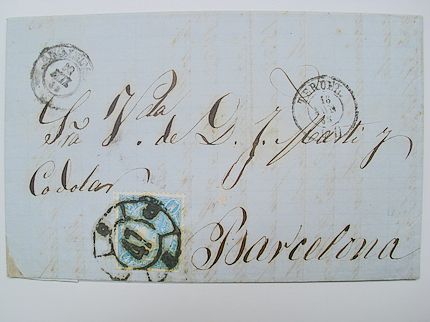 TERUEL
18
Sra Vda de D. J. Marti y
Codolar
47
Barcelona